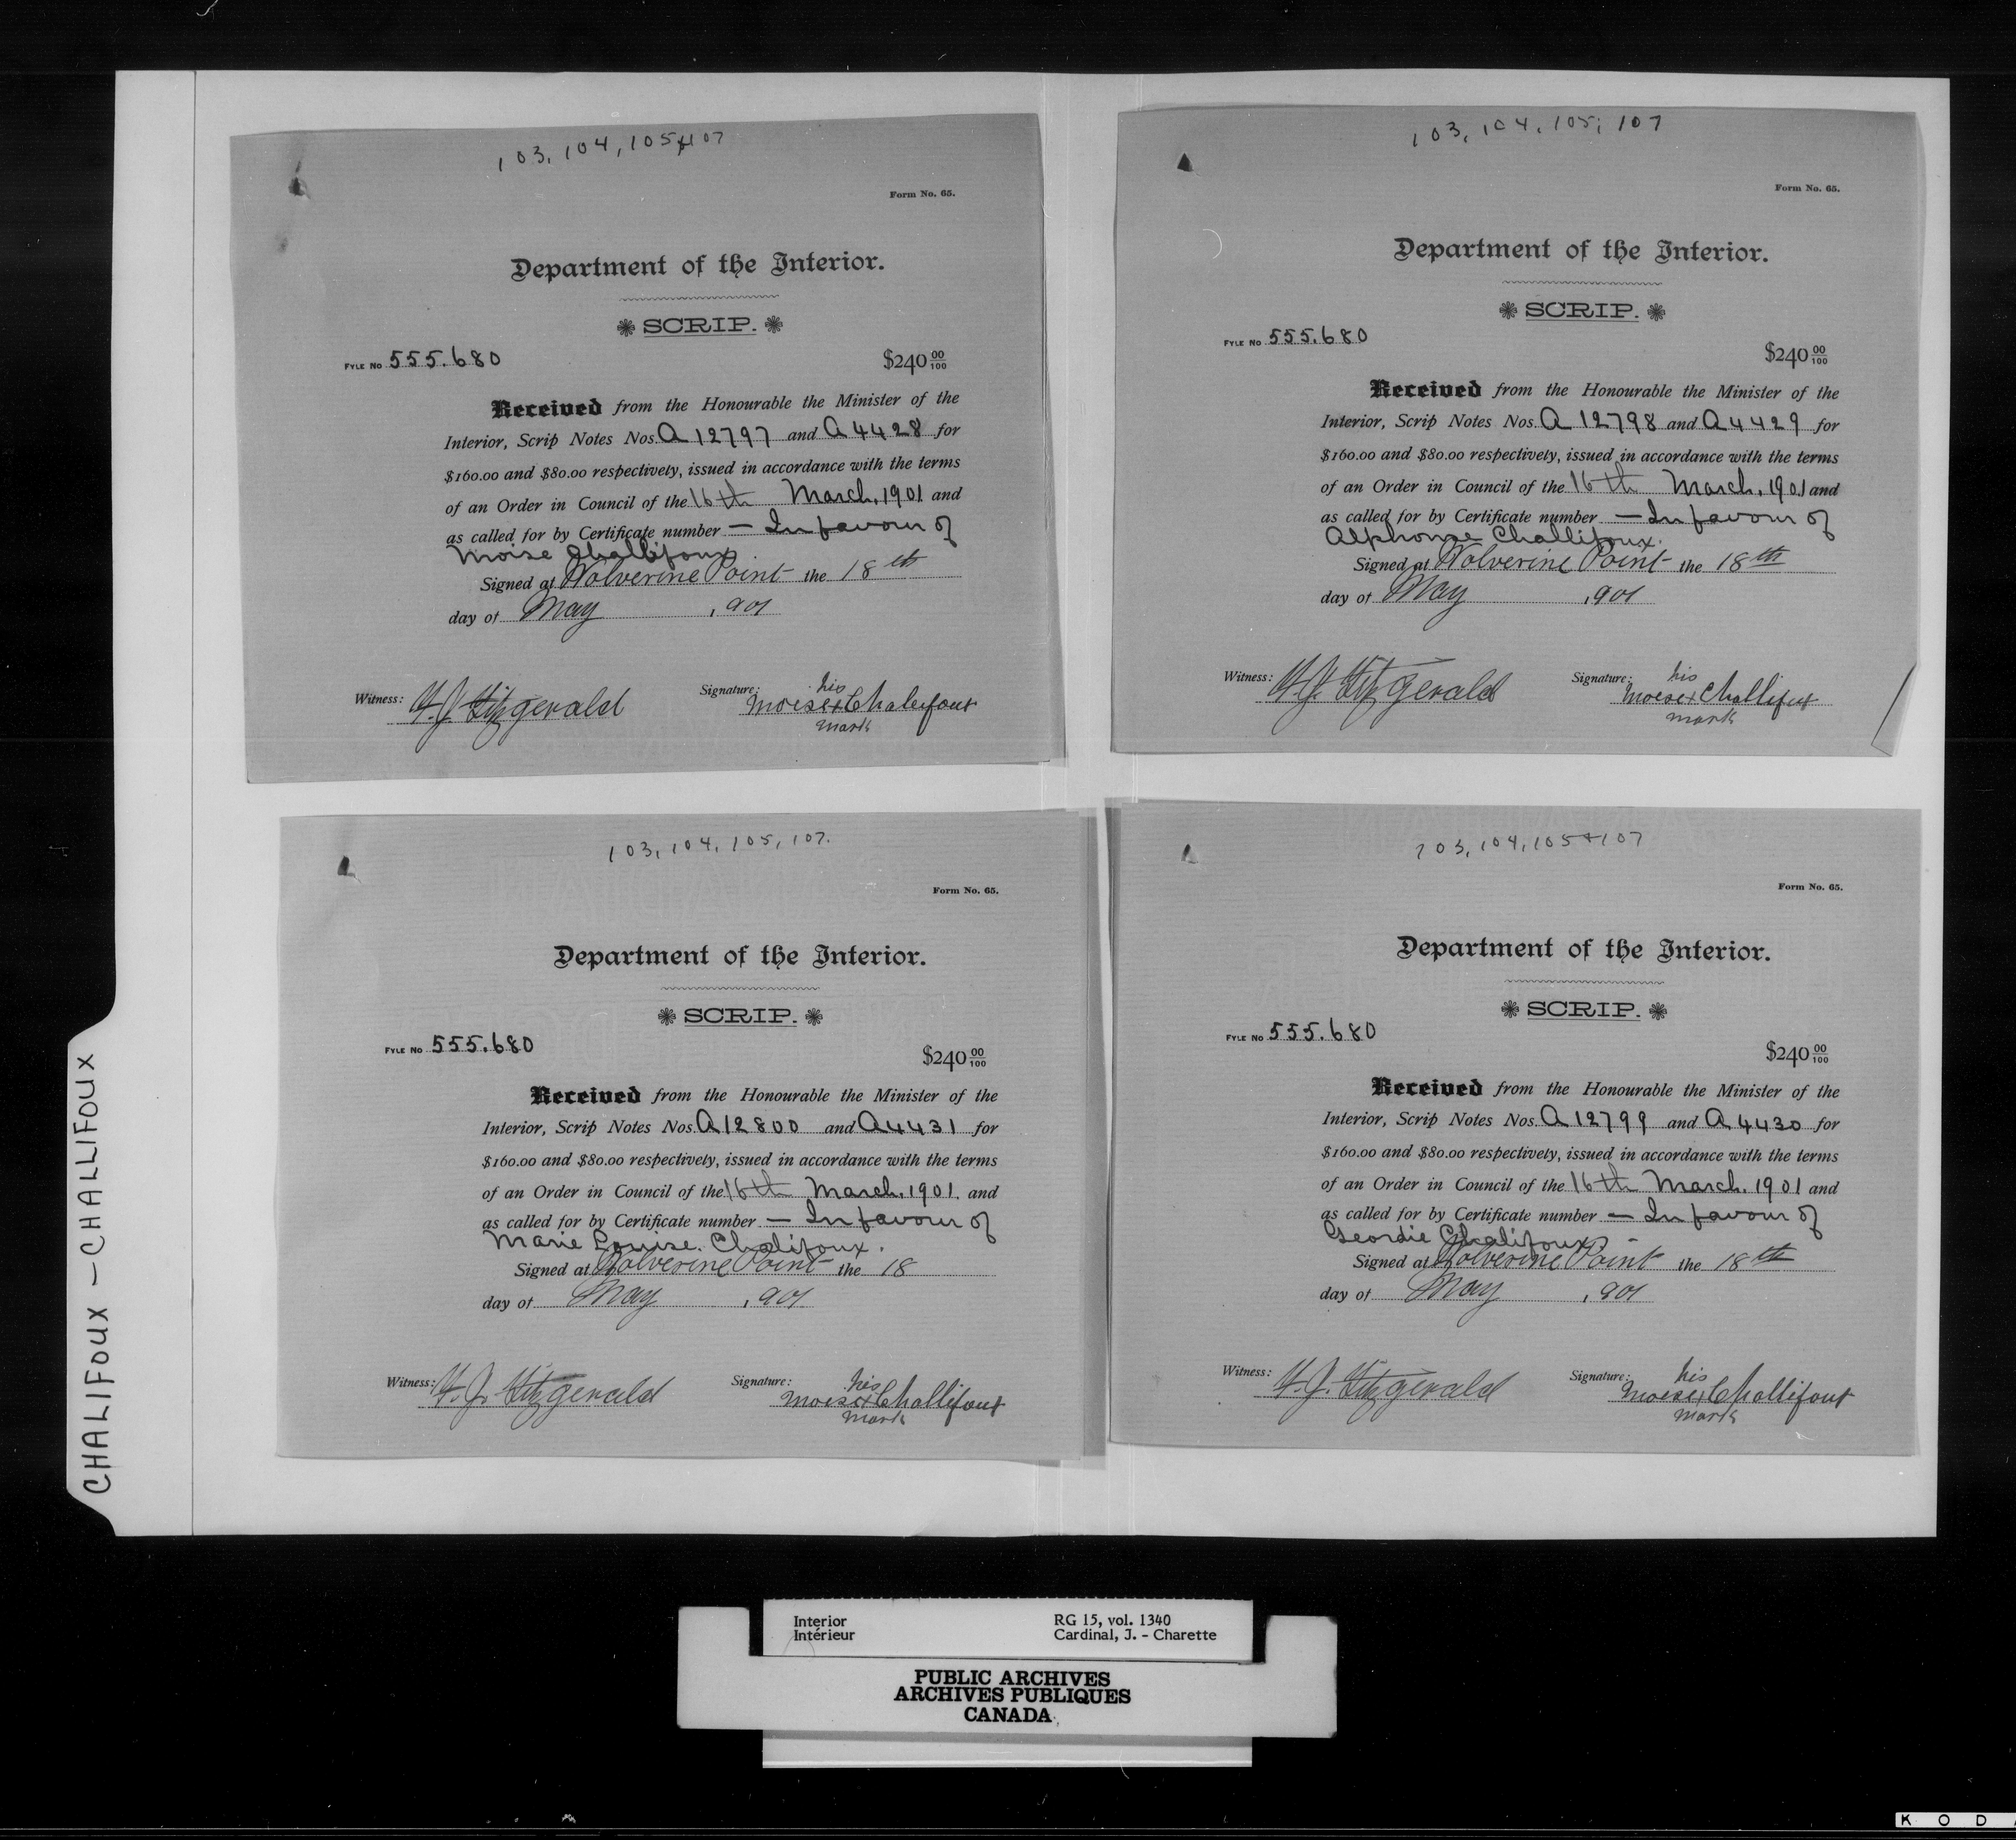 103, 104, 105 & 107
Form No. 65.
Department of the Interior.
SCRIP.
FYLE No 555.680
$240 00/100
Received from the Honourable the Minister of the
Interior, Scrip Notes Nos. A 12797 and A 4428 for
$160.00 and $80.00 respectively, issued in accordance with the terms
of an Order in Council of the 16th March, 1901 and
as called for by Certificate number — In favour of
Moise Challifoux.
Signed at Wolverine Point the 18th
day of May, 1901
Witness: Fitzgerald
Signature: his
Moise x Chalifoux
mark
103, 104, 105, 107
Form No. 65.
Department of the Interior.
SCRIP.
FYLE No 555.680
$240 00/100
Received from the Honourable the Minister of the
Interior, Scrip Notes Nos. A 12798 and A 4429 for
$160.00 and $80.00 respectively, issued in accordance with the terms
of an Order in Council of the 16th March, 1901 and
as called for by Certificate number — In favour of
Alphonse Challifoux.
Signed at Wolverine Point the 18th
day of May, 1901
Witness: Fitzgerald
Signature: his
Moise x Challifoux
mark
103, 104, 105, 107.
Form No. 65.
Department of the Interior.
SCRIP.
FYLE No 555.680
$240 00/100
Received from the Honourable the Minister of the
Interior, Scrip Notes Nos. A 12800 and A 4431 for
$160.00 and $80.00 respectively, issued in accordance with the terms
of an Order in Council of the 16th March, 1901. and
as called for by Certificate number — In favour of
Marie Louise. Chalifoux.
Signed at Wolverine Point the 18
day of May, 1901.
Witness: Fitzgerald
Signature: his
Moise x Challifoux
mark
103, 104, 105 + 107
Form No. 65.
Department of the Interior.
SCRIP.
FYLE No 555.680
$240 00/100
Received from the Honourable the Minister of the
Interior, Scrip Notes Nos. A 12799 and A 4430 for
$160.00 and $80.00 respectively, issued in accordance with the terms
of an Order in Council of the 16th March, 1901 and
as called for by Certificate number — In favour of
Geordie Chalifoux.
Signed at Wolverine Point the 18th
day of May, 1901
Witness: Fitzgerald
Signature: his
Moise x Challifoux
mark
CHALIFOUX - CHALLIFOUX
Interior
Intérieur
RG 15, vol. 1340
Cardinal, J. - Charette
PUBLIC ARCHIVES
ARCHIVES PUBLIQUES
CANADA
K O D